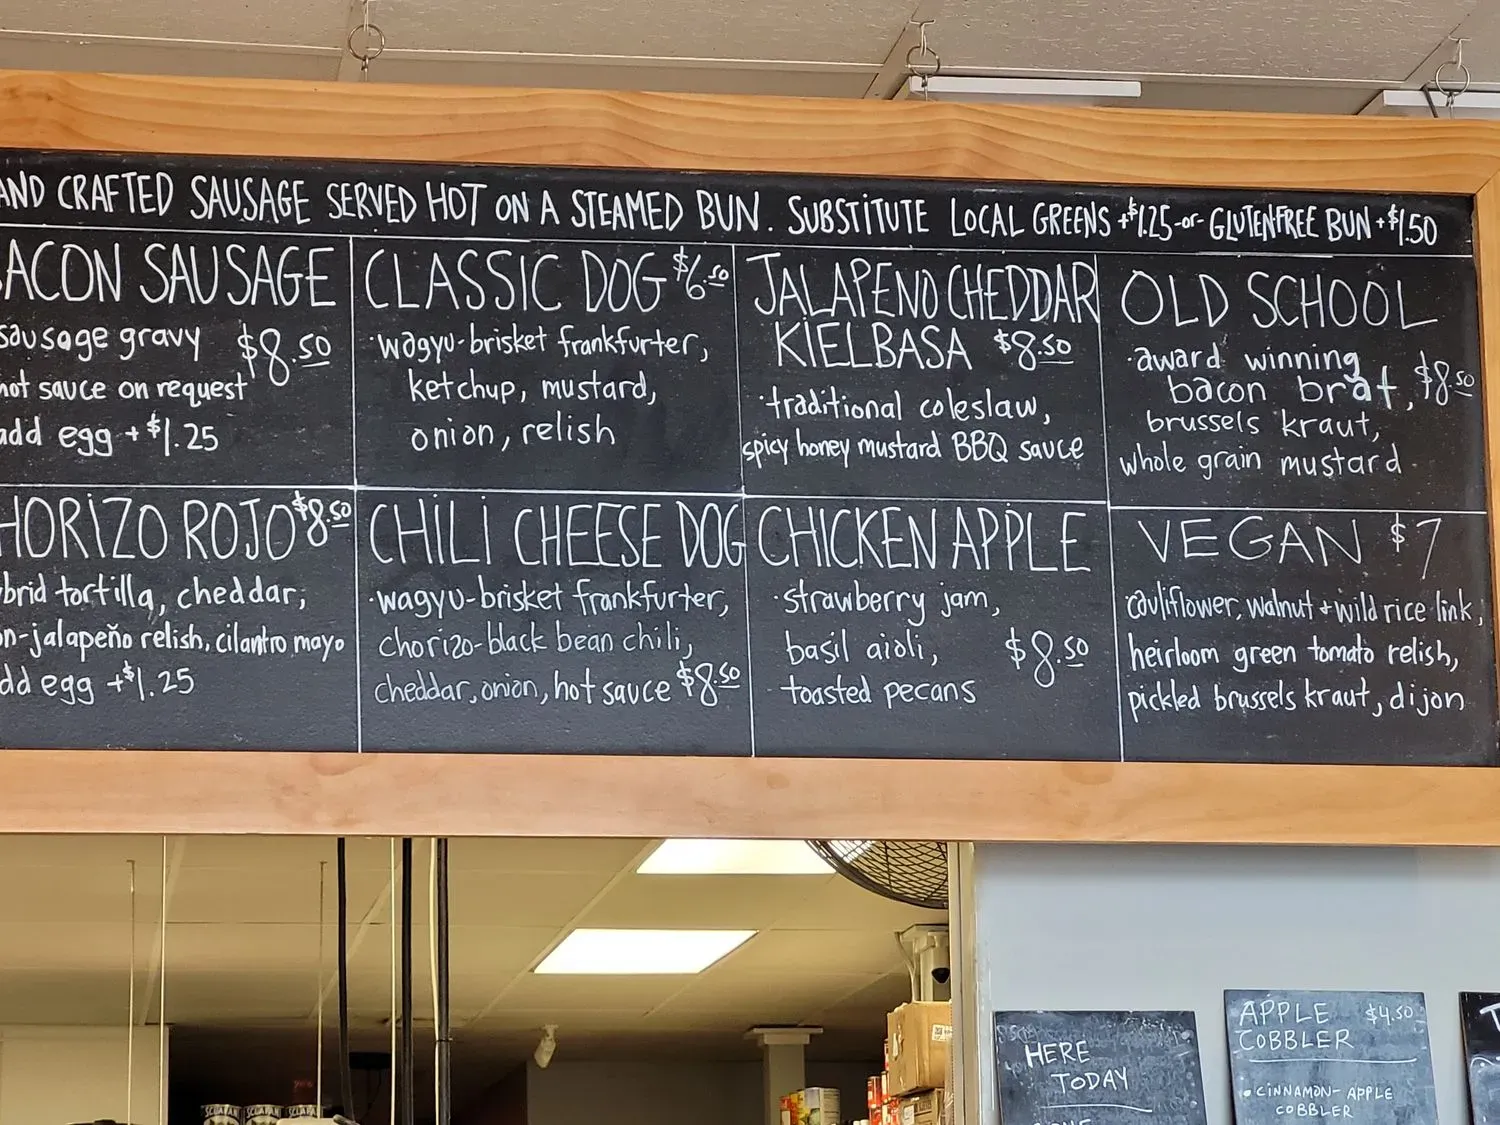 AND CRAFTED SAUSAGE SERVED HOT ON A STEAMED BUN. SUBSTITUTE LOCAL GREENS +$1.25 -or- GLUTENFREE BUN +$1.50
ACON SAUSAGE
sausage gravy $8.50
hot sauce on request
add egg +$1.25
CLASSIC DOG $6.50
·wagyu-brisket frankfurter,
ketchup, mustard,
onion, relish
JALAPENO CHEDDAR
KIELBASA $8.50
·traditional coleslaw,
spicy honey mustard BBQ sauce
OLD SCHOOL
·award winning
bacon brat, $8.50
brussels kraut,
whole grain mustard
HORIZO ROJO $8.50
brid tortilla, cheddar,
on-jalapeño relish, cilantro mayo
dd egg +$1.25
CHILI CHEESE DOG
·wagyu-brisket frankfurter,
chorizo-black bean chili,
cheddar, onion, hot sauce $8.50
CHICKEN APPLE
·strawberry jam,
basil aioli, $8.50
toasted pecans
VEGAN $7
·cauliflower, walnut + wild rice link,
heirloom green tomato relish,
pickled brussels kraut, dijon
HERE
TODAY
APPLE $4.50
COBBLER
• CINNAMON-APPLE
COBBLER
SCLAFANI SCLAFANI SCLAFANI